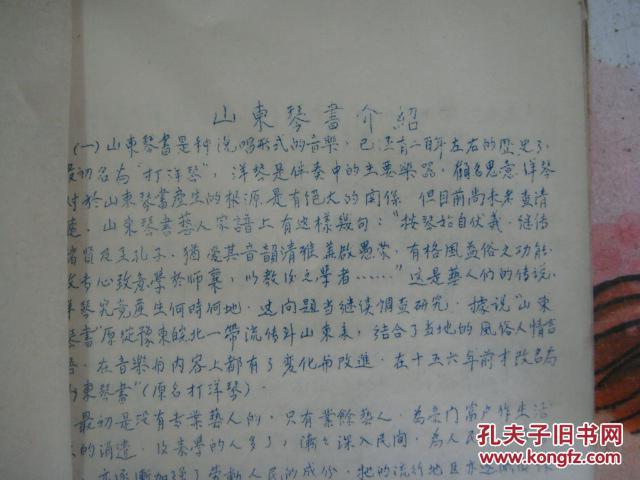 山東琴書介紹
(一)山東琴書是种说唱形式的音樂，已還有二百年左右的歷史了，
最初名為"打洋琴"，洋琴是伴奏中的主要樂器，顧名思意洋琴
对於山東琴書產生的根源是有绝大的関係，但目前尚未考查清
楚，山東琴書藝人家譜上有这樣幾句："按琴始自伏羲，继传
诸賢及至孔子，猶爱其音韻清雅兼啟愚蒙，有格風益俗之功能，
故考心致意學於師襄，以教後之學者……"这是藝人们的传说，
洋琴究竟產生何時何地，这问題当继续調查研究，據说"山東
琴書"原從豫東皖北一帶流传到山東來，結合了当地的風俗人情言
語，在音樂和内容上都有了变化和改進，在十五六年前才改名為
山東琴書"(原名打洋琴)．
最初是没有专業藝人的，只有業餘藝人，為
的消遣，后來學的人多了，漸々深入民间，為人民
亦逐漸加强了劳動人民的成份，
孔夫子旧书网
KONGFZ.COM